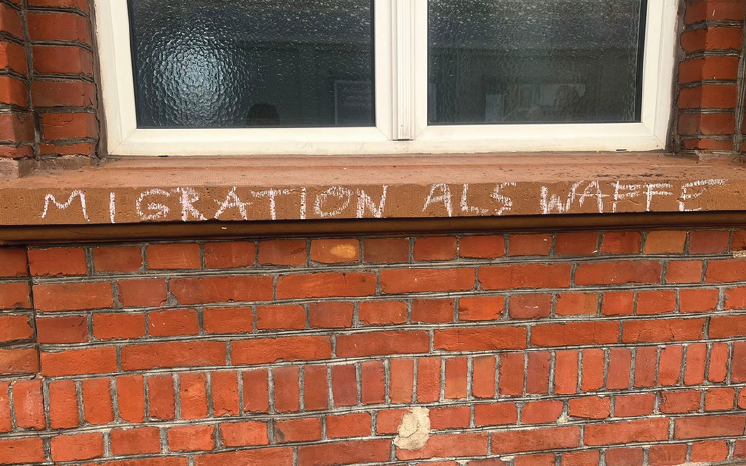 MIGRATION ALS WAFFE